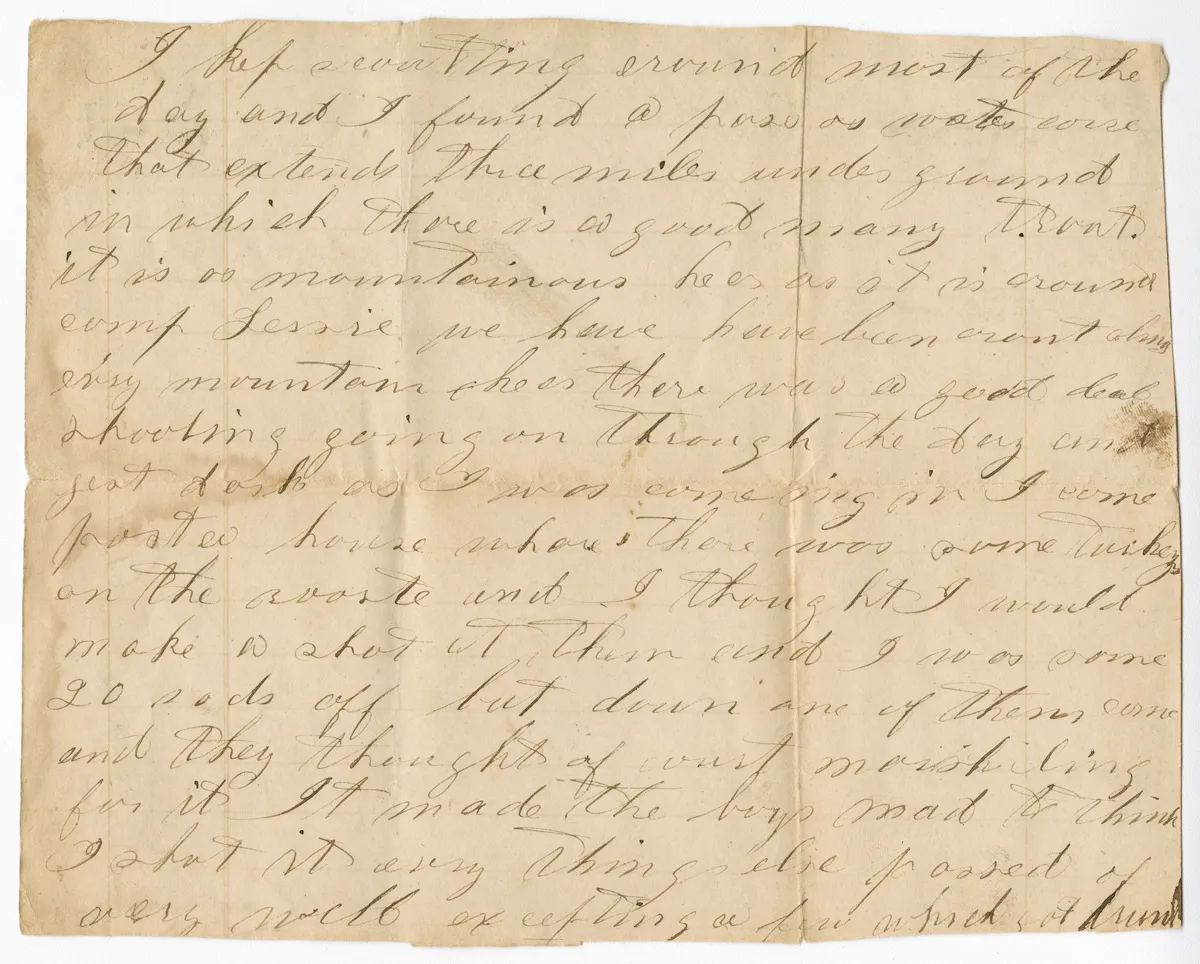 I kep scoutting eround most of the
day and I found a pase as water corse
that extends three miles under ground
in which there is a good many trout.
it is as mountainous heer as it is around
comp Jessie we have have been eront along
evry mountain heer there was a good deal
shooting going on through the day and
jest dark as I was comeing in I come
paste a house whare there was some turkeys
on the rooste and I thought I would
make a shot at them and I was some
20 rods off but down one of them come
and they thought of court marshiling
for it It made the boys mad to think
I shot it evry thing else passed of
very well excepting a few which got drunk